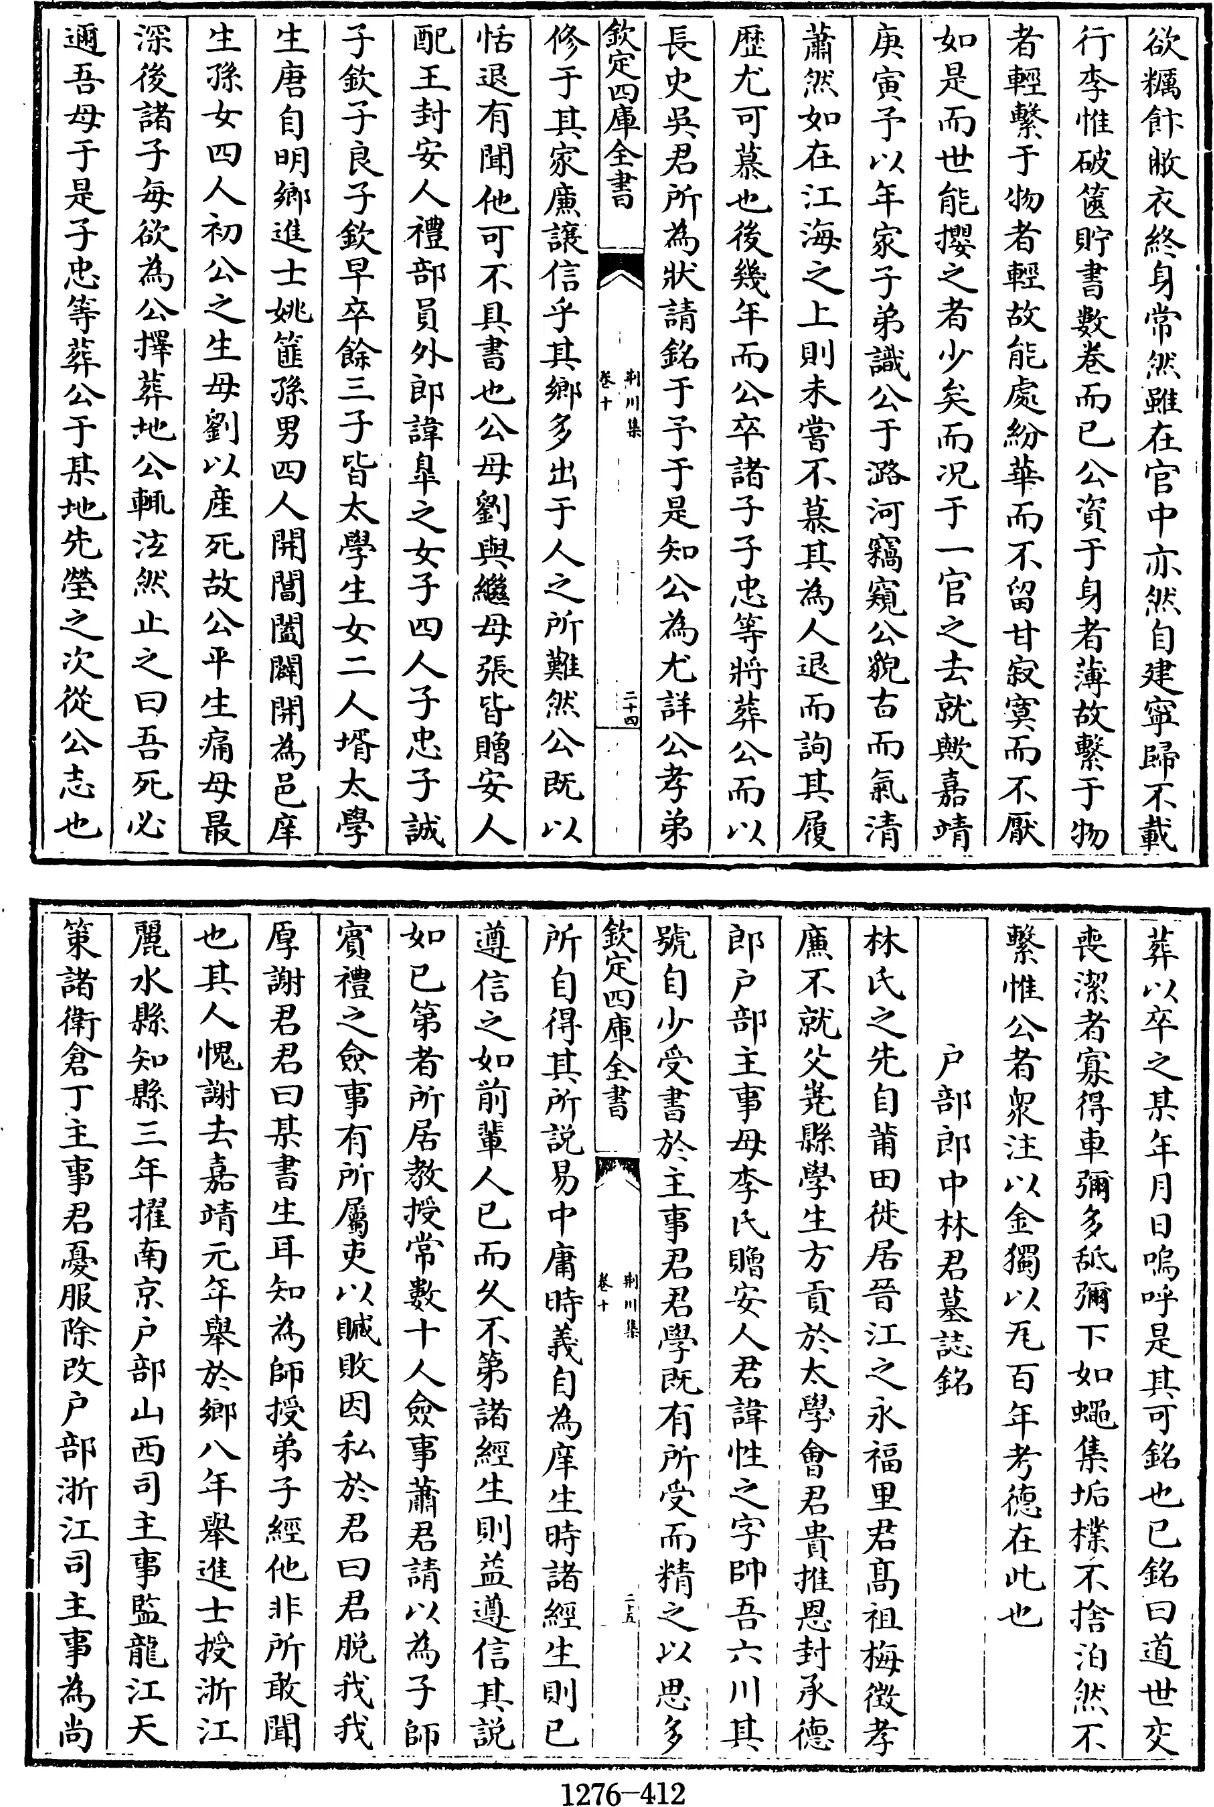 欲糲飰敝衣終身常然雖在官中亦然自建寧歸不載
行李惟破篋貯書數卷而已公資于身者薄故繫于物
者輕繫于物者輕故能處紛華而不留甘寂寞而不厭
如是而世能攖之者少矣而况于一官之去就歟嘉靖
庚寅予以年家子弟識公于潞河竊窺公貌古而氣清
蕭然如在江海之上則未嘗不慕其為人退而詢其履
歷尤可慕也後幾年而公卒諸子子忠等將葬公而以
長史吳君所為狀請銘于予于是知公為尤詳公孝弟
欽定四庫全書
荆川集
卷十
二十四
修于其家廉讓信乎其鄉多出于人之所難然公既以
恬退有聞他可不具書也公母劉與繼母張皆贈安人
配王封安人禮部員外郎諱臯之女子四人子忠子誠
子欽子良子欽早卒餘三子皆太學生女二人壻太學
生唐自明鄉進士姚篚孫男四人開闓闔闢開為邑庠
生孫女四人初公之生母劉以産死故公平生痛母最
深後諸子每欲為公擇葬地公輒泫然止之曰吾死必
邇吾母于是子忠等葬公于某地先塋之次從公志也
葬以卒之某年月日嗚呼是其可銘也已銘曰道世交
喪潔者寡得車彌多舐彌下如蠅集垢樸不捨泊然不
繫惟公者衆注以金獨以瓦百年考德在此也
户部郎中林君墓誌銘
林氏之先自莆田徙居晉江之永福里君髙祖梅徵孝
廉不就父堯縣學生方貢於太學會君貴推恩封承德
郎户部主事母李氏贈安人君諱性之字帥吾六川其
號自少受書於主事君君學既有所受而精之以思多
欽定四庫全書
荆川集
卷十
二十五
所自得其所説易中庸時義自為庠生時諸經生則已
遵信之如前輩人已而久不第諸經生則益遵信其説
如已第者所居教授常數十人僉事蕭君請以為子師
賓禮之僉事有所屬吏以贓敗因私於君曰君脱我我
厚謝君君曰某書生耳知為師授弟子經他非所敢聞
也其人愧謝去嘉靖元年舉於鄉八年舉進士授浙江
麗水縣知縣三年擢南京户部山西司主事監龍江天
策諸衛倉丁主事君憂服除改户部浙江司主事為尚
1276-412